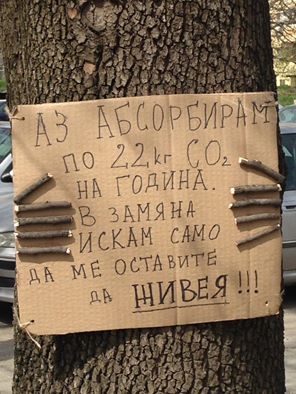 АЗ АБСОРБИРАМ
ПО 22кг CO₂
НА ГОДИНА.
В ЗАМЯНА
ИСКАМ САМО
ДА МЕ ОСТАВИТЕ
ДА ЖИВЕЯ!!!